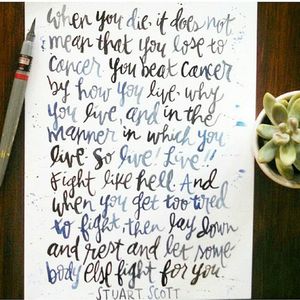 When you die, it does not
mean that you lose to
cancer. You beat cancer
by how you live. why
you live, and in the
manner in which you
live. So live! Live!!
Fight like hell. And
when you get too tired
to fight, then lay down
and rest and let some
body else fight for you
STUART SCOTT